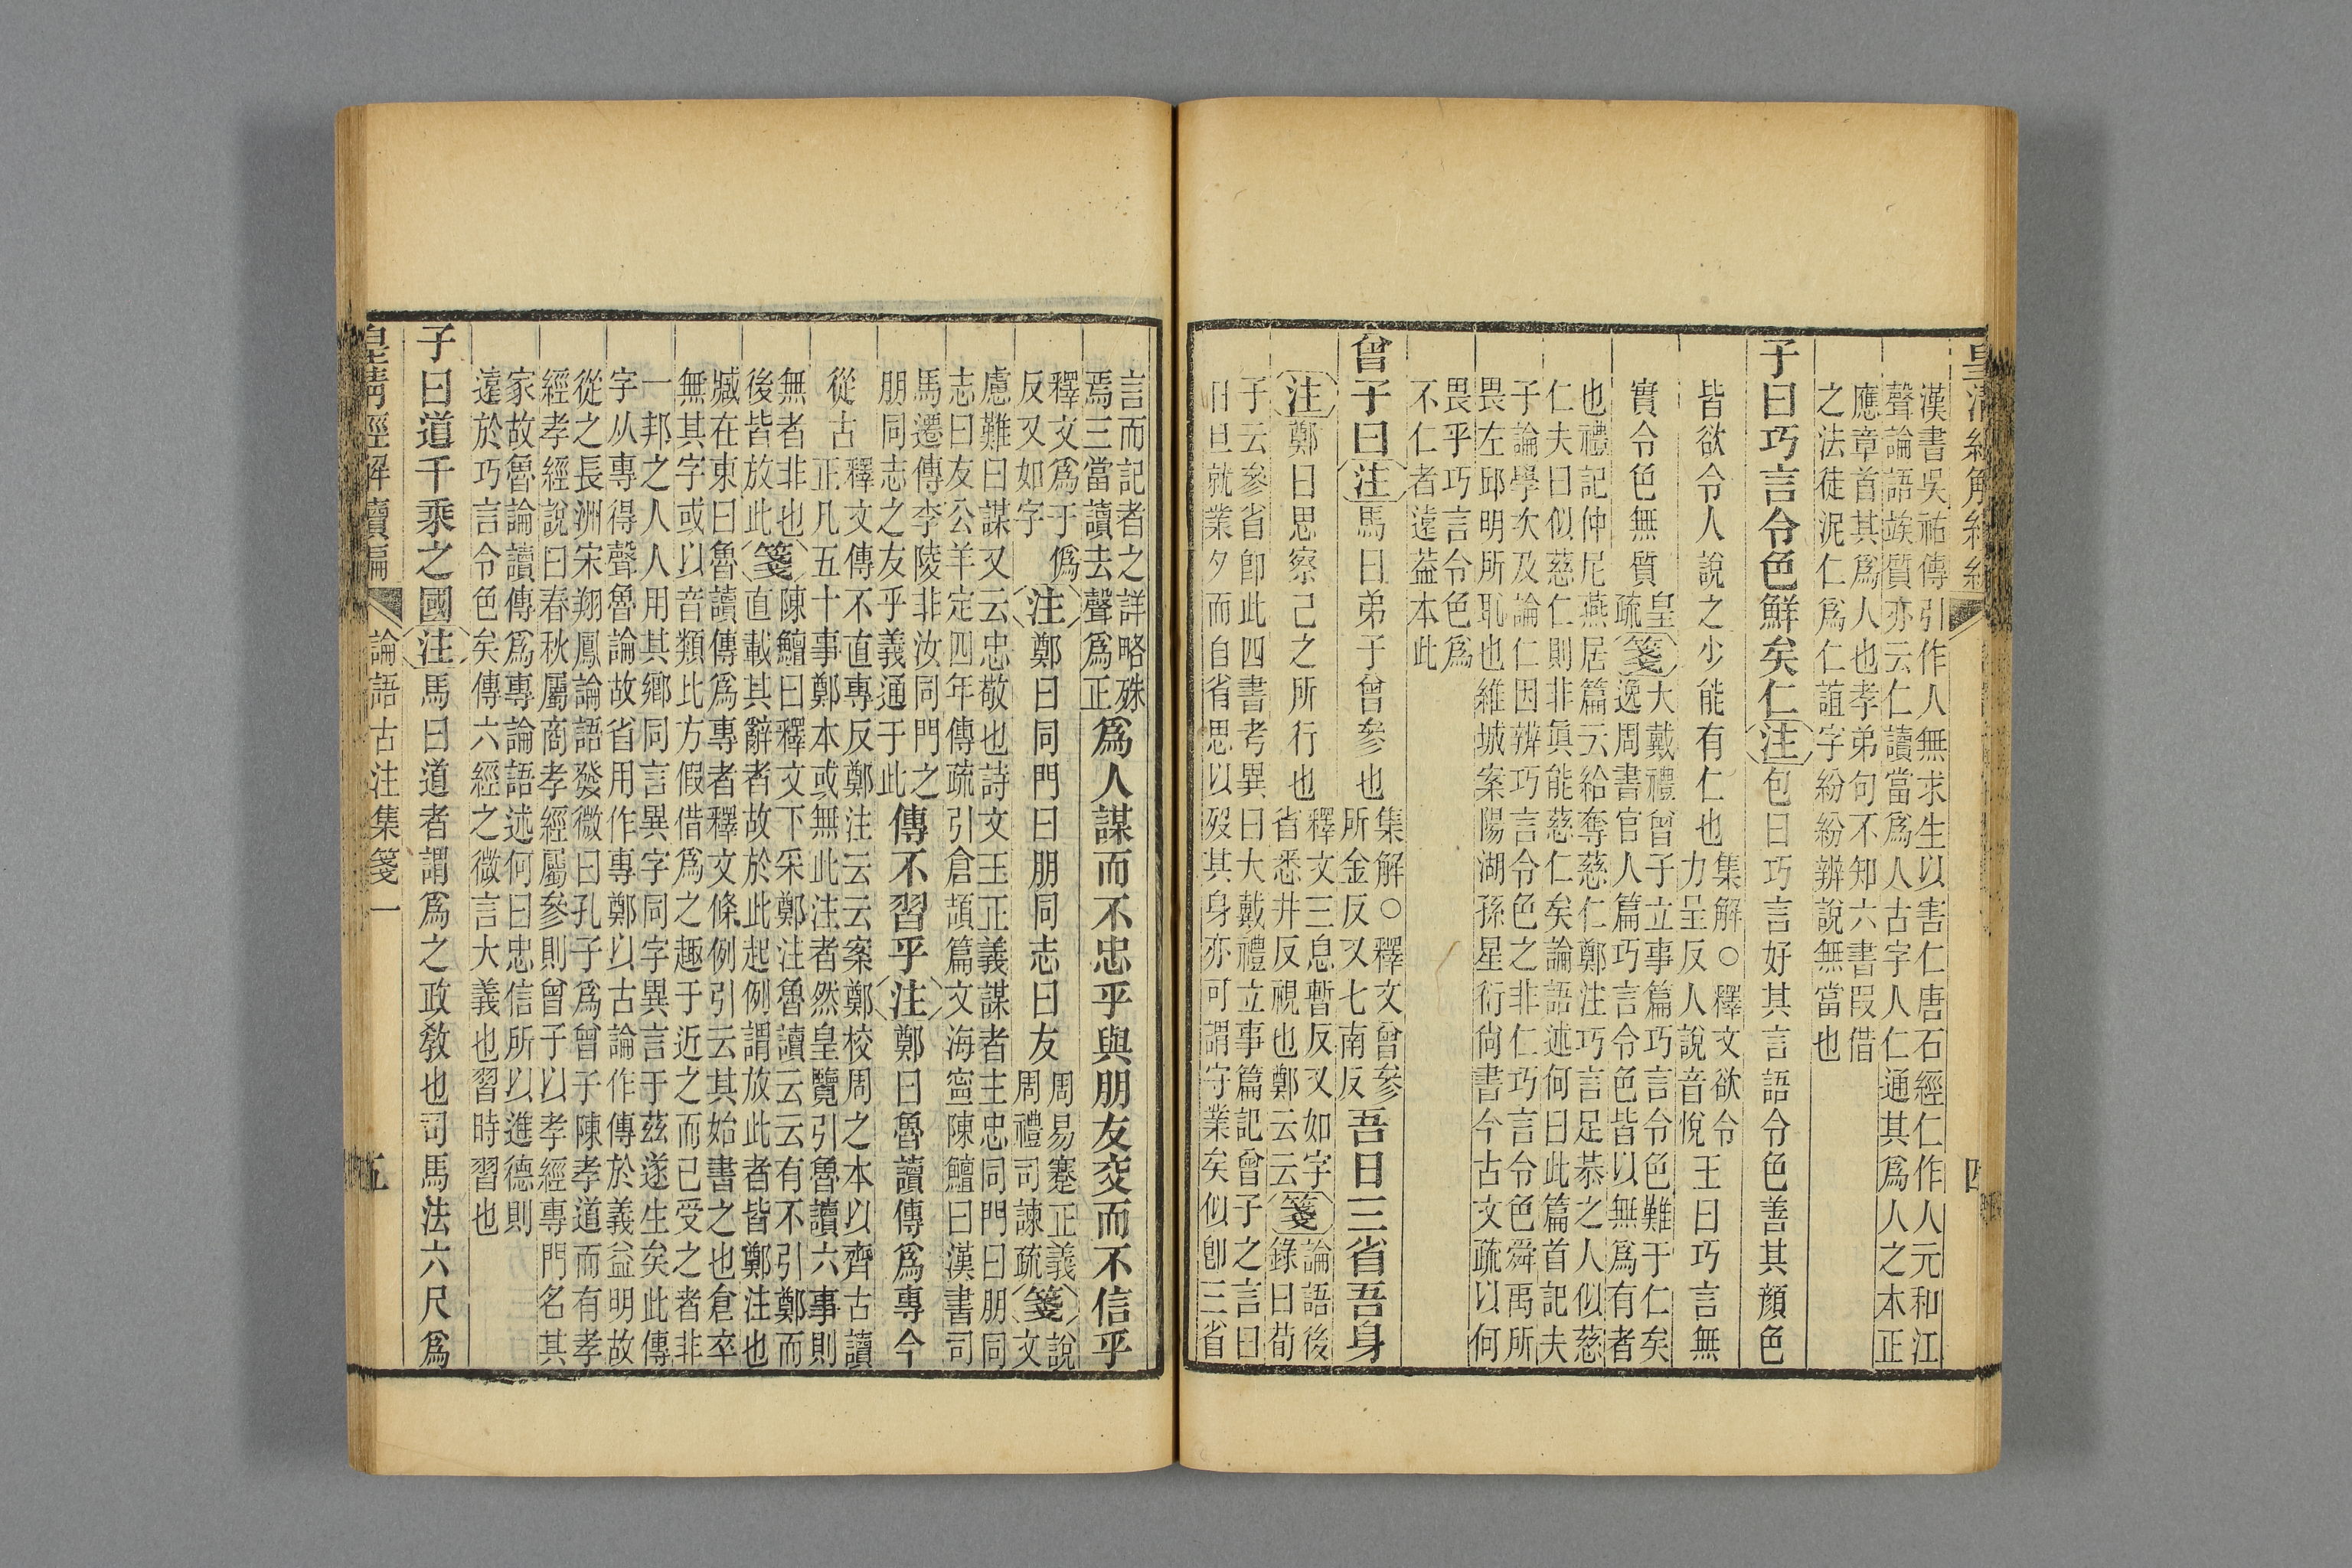 漢書吳祐傳引作人無求生以害仁唐石經仁作人元和江
聲論語竢質亦云仁讀當爲人古字人仁通其爲人之本正
應章首其爲人也孝弟句不知六書叚借
之法徒泥仁爲仁誼字紛紛辨說無當也
子曰巧言令色鮮矣仁注包曰巧言好其言語令色善其顏色
皆欲令人說之少能有仁也集解○釋文欲令
力呈反人說音悅王曰巧言無
實令色無質皇
疏箋大戴禮曾子立事篇巧言令色難于仁矣
逸周書官人篇巧言令色皆以無爲有者
也禮記仲尼燕居篇云給奪慈仁鄭注巧言足恭之人似慈
仁夫曰似慈仁則非眞能慈仁矣論語述何曰此篇首記夫
子論學次及論仁因辨巧言令色之非仁巧言令色舜禹所
畏左邱明所恥也維城案陽湖孫星衍尙書今古文疏以何
畏乎巧言令色爲
不仁者遠益本此
曾子曰注馬曰弟子曾參也集解○釋文曾參
所金反又七南反吾日三省吾身
注鄭曰思察己之所行也釋文三息暫反又如字
省悉井反視也鄭云云箋論語後
錄曰荀
子云參省卽此四書考異曰大戴禮立事篇記曾子之言曰
日旦就業夕而自省思以歿其身亦可謂守業矣似卽三省
言而記者之詳略殊
焉三當讀去聲爲正爲人謀而不忠乎與朋友交而不信乎
釋文爲于僞
反又如字注鄭曰同門曰朋同志曰友周易蹇正義
周禮司諫疏箋說
文
慮難曰謀又云忠敬也詩文王正義謀者主忠同門曰朋同
志曰友公羊定四年傳疏引倉頡篇文海寧陳鱣曰漢書司
馬遷傳李陵非汝同門之
朋同志之友乎義通于此傳不習乎注鄭曰魯讀傳爲專今
從古釋文傳不直專反鄭注云云案鄭校周之本以齊古讀
正凡五十事鄭本或無此注者然皇覽引魯讀六事則
無者非也箋陳鱣曰釋文下采鄭注魯讀云云有不引鄭而
後皆放此直載其辭者故於此起例謂放此者皆鄭注也
臧在東曰魯讀傳爲專者釋文條例引云其始書之也倉卒
無其字或以音類比方假借爲之趣于近之而已受之者非
一邦之人人用其鄉同言異字同字異言于茲遂生矣此傳
字从專得聲魯論故省用作專鄭以古論作傳於義益明故
從之長洲宋翔鳳論語發微曰孔子爲曾子陳孝道而有孝
經孝經說曰春秋屬商孝經屬參則曾子以孝經專門名其
家故魯論讀傳爲專論語述何曰忠信所以進德則
遠於巧言令色矣傳六經之微言大義也習時習也
子曰道千乘之國注馬曰道者謂爲之政敎也司馬法六尺爲
皇淸經解續編 論語古注集箋一 五